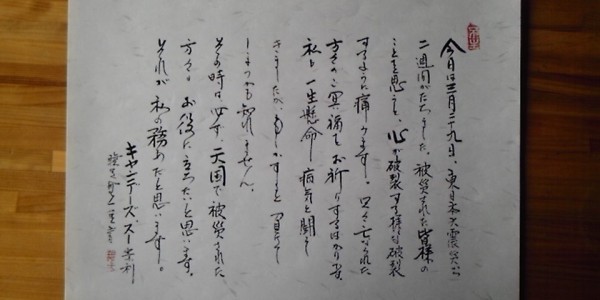 今日は三月二十九日、東日本大震災から
二週間がたちました。被災された皆様の
ことを思うと、心が破裂する様な破裂
するように痛みます。只々亡くなられた
方々のご冥福をお祈りするばかり
私も一生懸命病気と闘って
きましたが、もしかすると負けて
しまうかも知れません。
その時は必ず天国で被災された
方々のお役に立ちたいと思います。
それが私の務めだと思います。
キャンディーズ スー